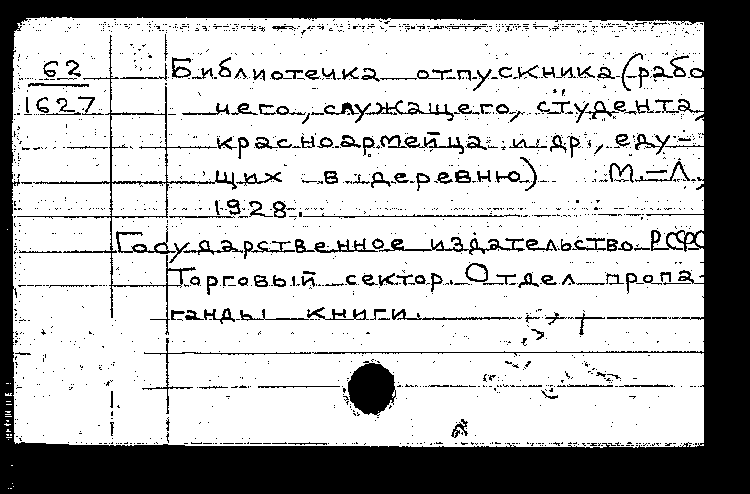 62
1627
Библиотечка отпускника (рабо
чего, служащего, студента,
красноармейца и др., еду-
щих в деревню) М.-Л.,
1928.
Государственное издательство РСФС
Торговый сектор. Отдел пропа-
ганды книги.